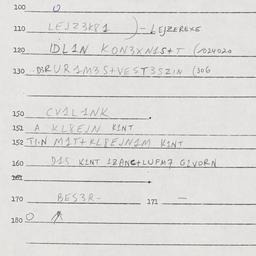 100
110 LEJZ3K81 )-LEJZEREXE
120 IDL1N KON3XN1S+T (
130 RUR1M3S+VEST3SZIN (306
150 CV1L1NK
151 A KL8EJN K1NT
152 T1.N M1T+KL8EJN1M K1NT
160 D1S K1NT 1ZANC+LUFM7 G1VORN
161
170 BES3R- 171 -
180